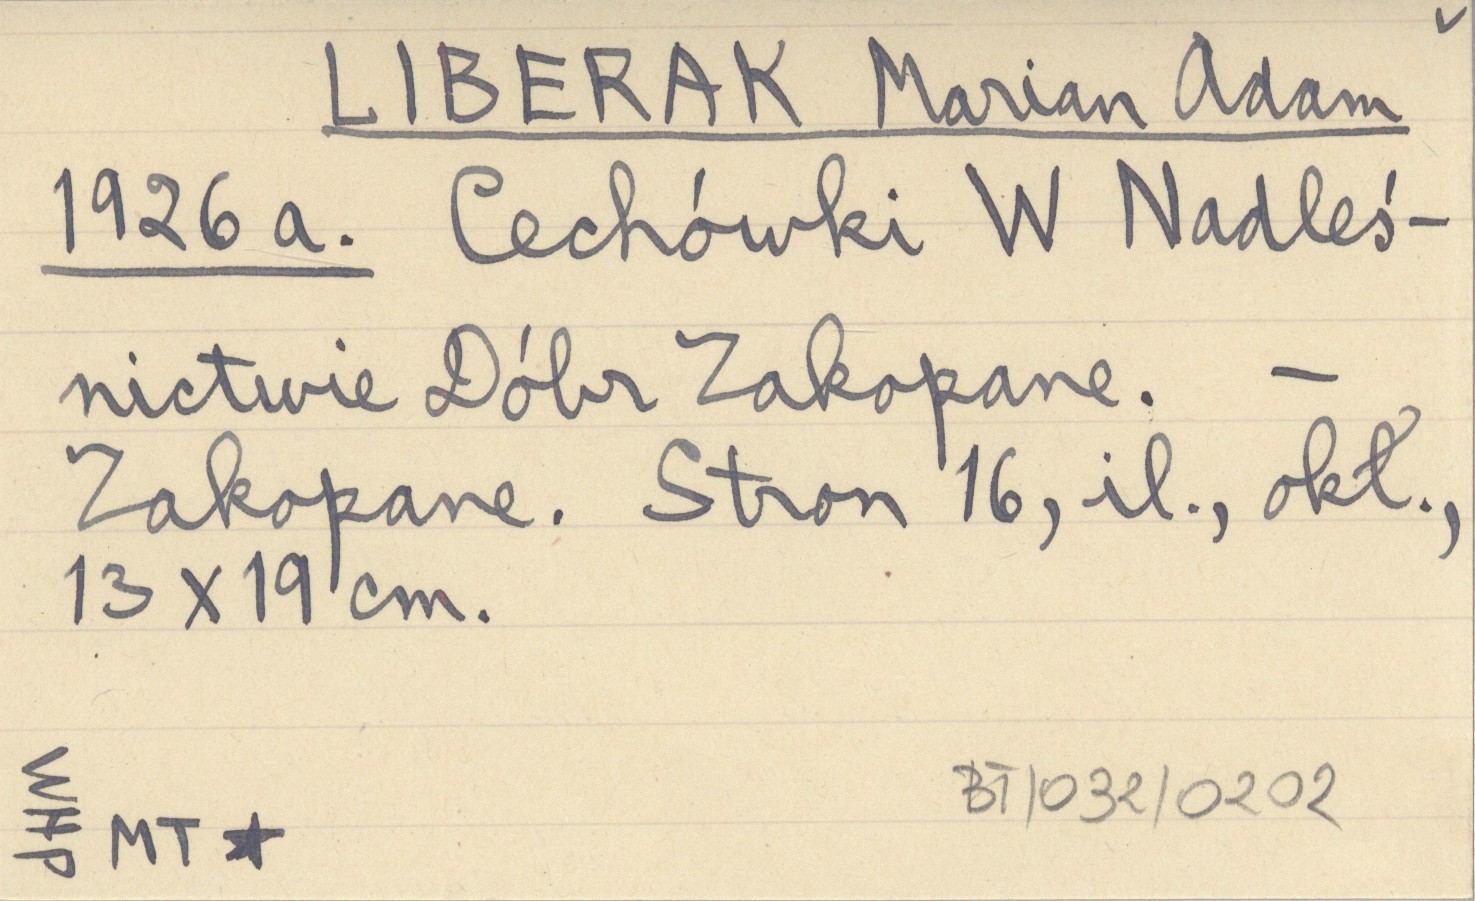 LIBERAK Marian Adam
1926 a. Cechówki W Nadleś-
nictwie Dóbr Zakopane. –
Zakopane. Stron 16, il., okł.,
13 x 19 cm.
WHP
MT ★
BT/032/0202